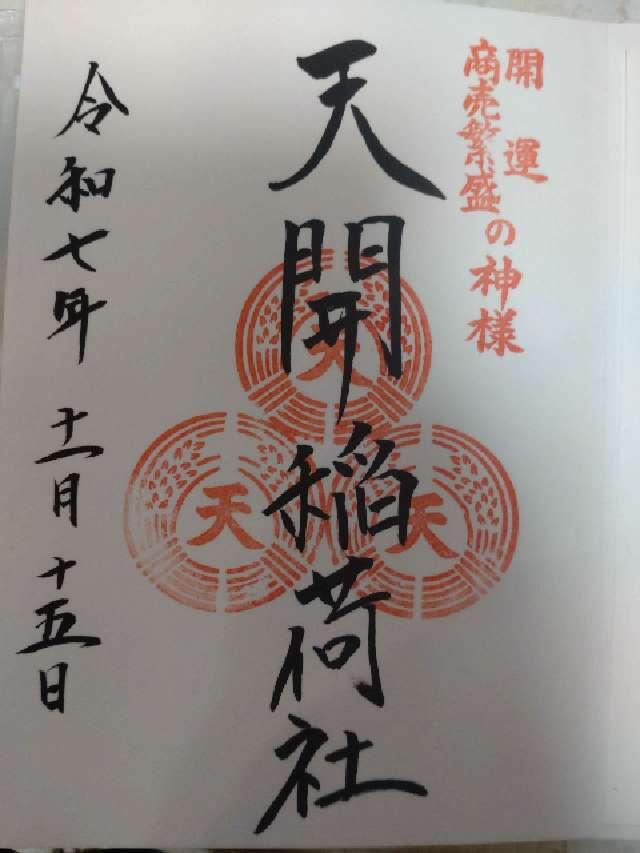 開運
商売繁盛の神様
天開稲荷社
天
天
天
令和七年十一月十五日